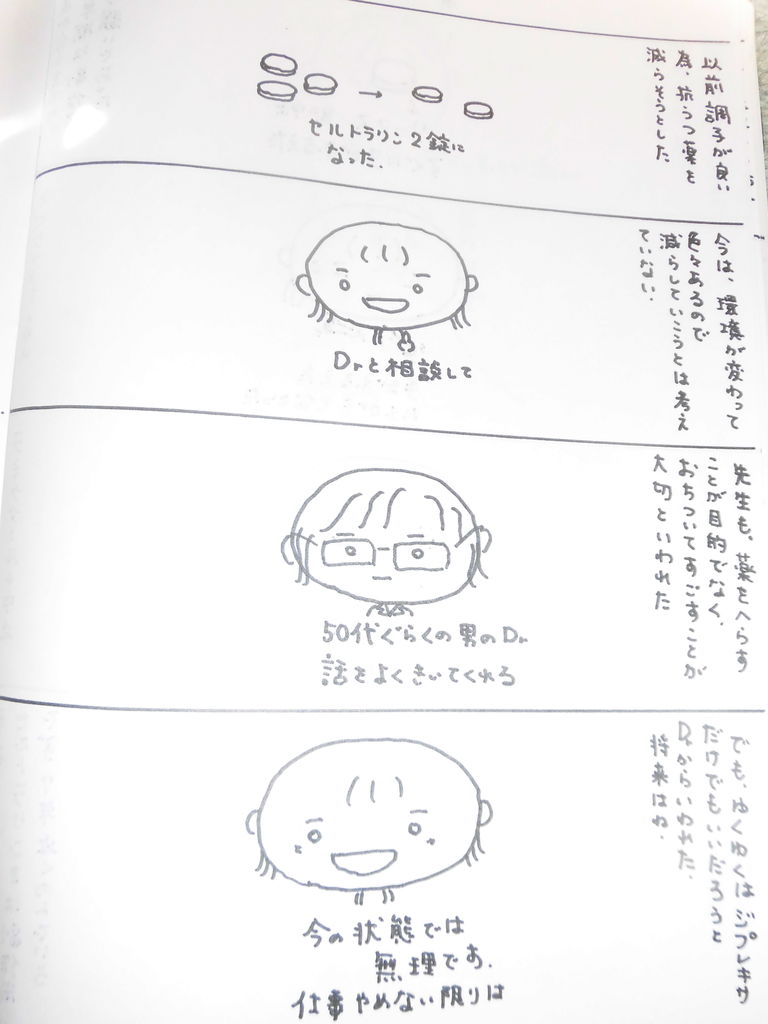 以前調子が良い
為、抗うつ薬を
減らそうとした
セルトラリン2錠に
なった.
今は、環境が変わって
色々あるので
減らしていこうとは考え
ていない.
Drと相談して
先生も、薬をへらす
ことが目的でなく、
おちついてすごすことが
大切といわれた
50代ぐらくの男のDr
話をよくきいてくれる
でも、ゆくゆくはジプレキサ
だけでもいいだろうと
Drからいわれた.
将来はね.
今の状態では
無理でお.
仕事やめない限りは